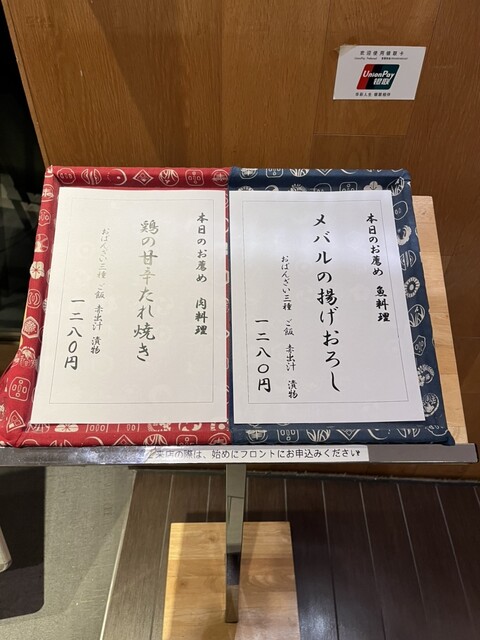 歡迎使用銀聯卡
UnionPay
银联
本日のお薦め 魚料理
メバルの揚げおろし
おばんざい三種 ご飯 赤出汁 漬物
一二八〇円
本日のお薦め 肉料理
鶏の甘辛たれ焼き
おばんざい三種 ご飯 赤出汁 漬物
一二八〇円
ご来店の際は、始めにフロントにお申込みください